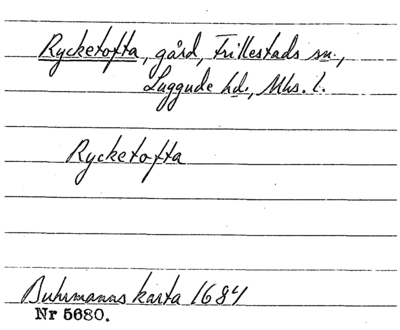 Rycketofta, gård, Frillestads sn.,
Luggude hd., Mhs. l.
Rycketofta
Buhrmanns karta 1684
Nr 5680.